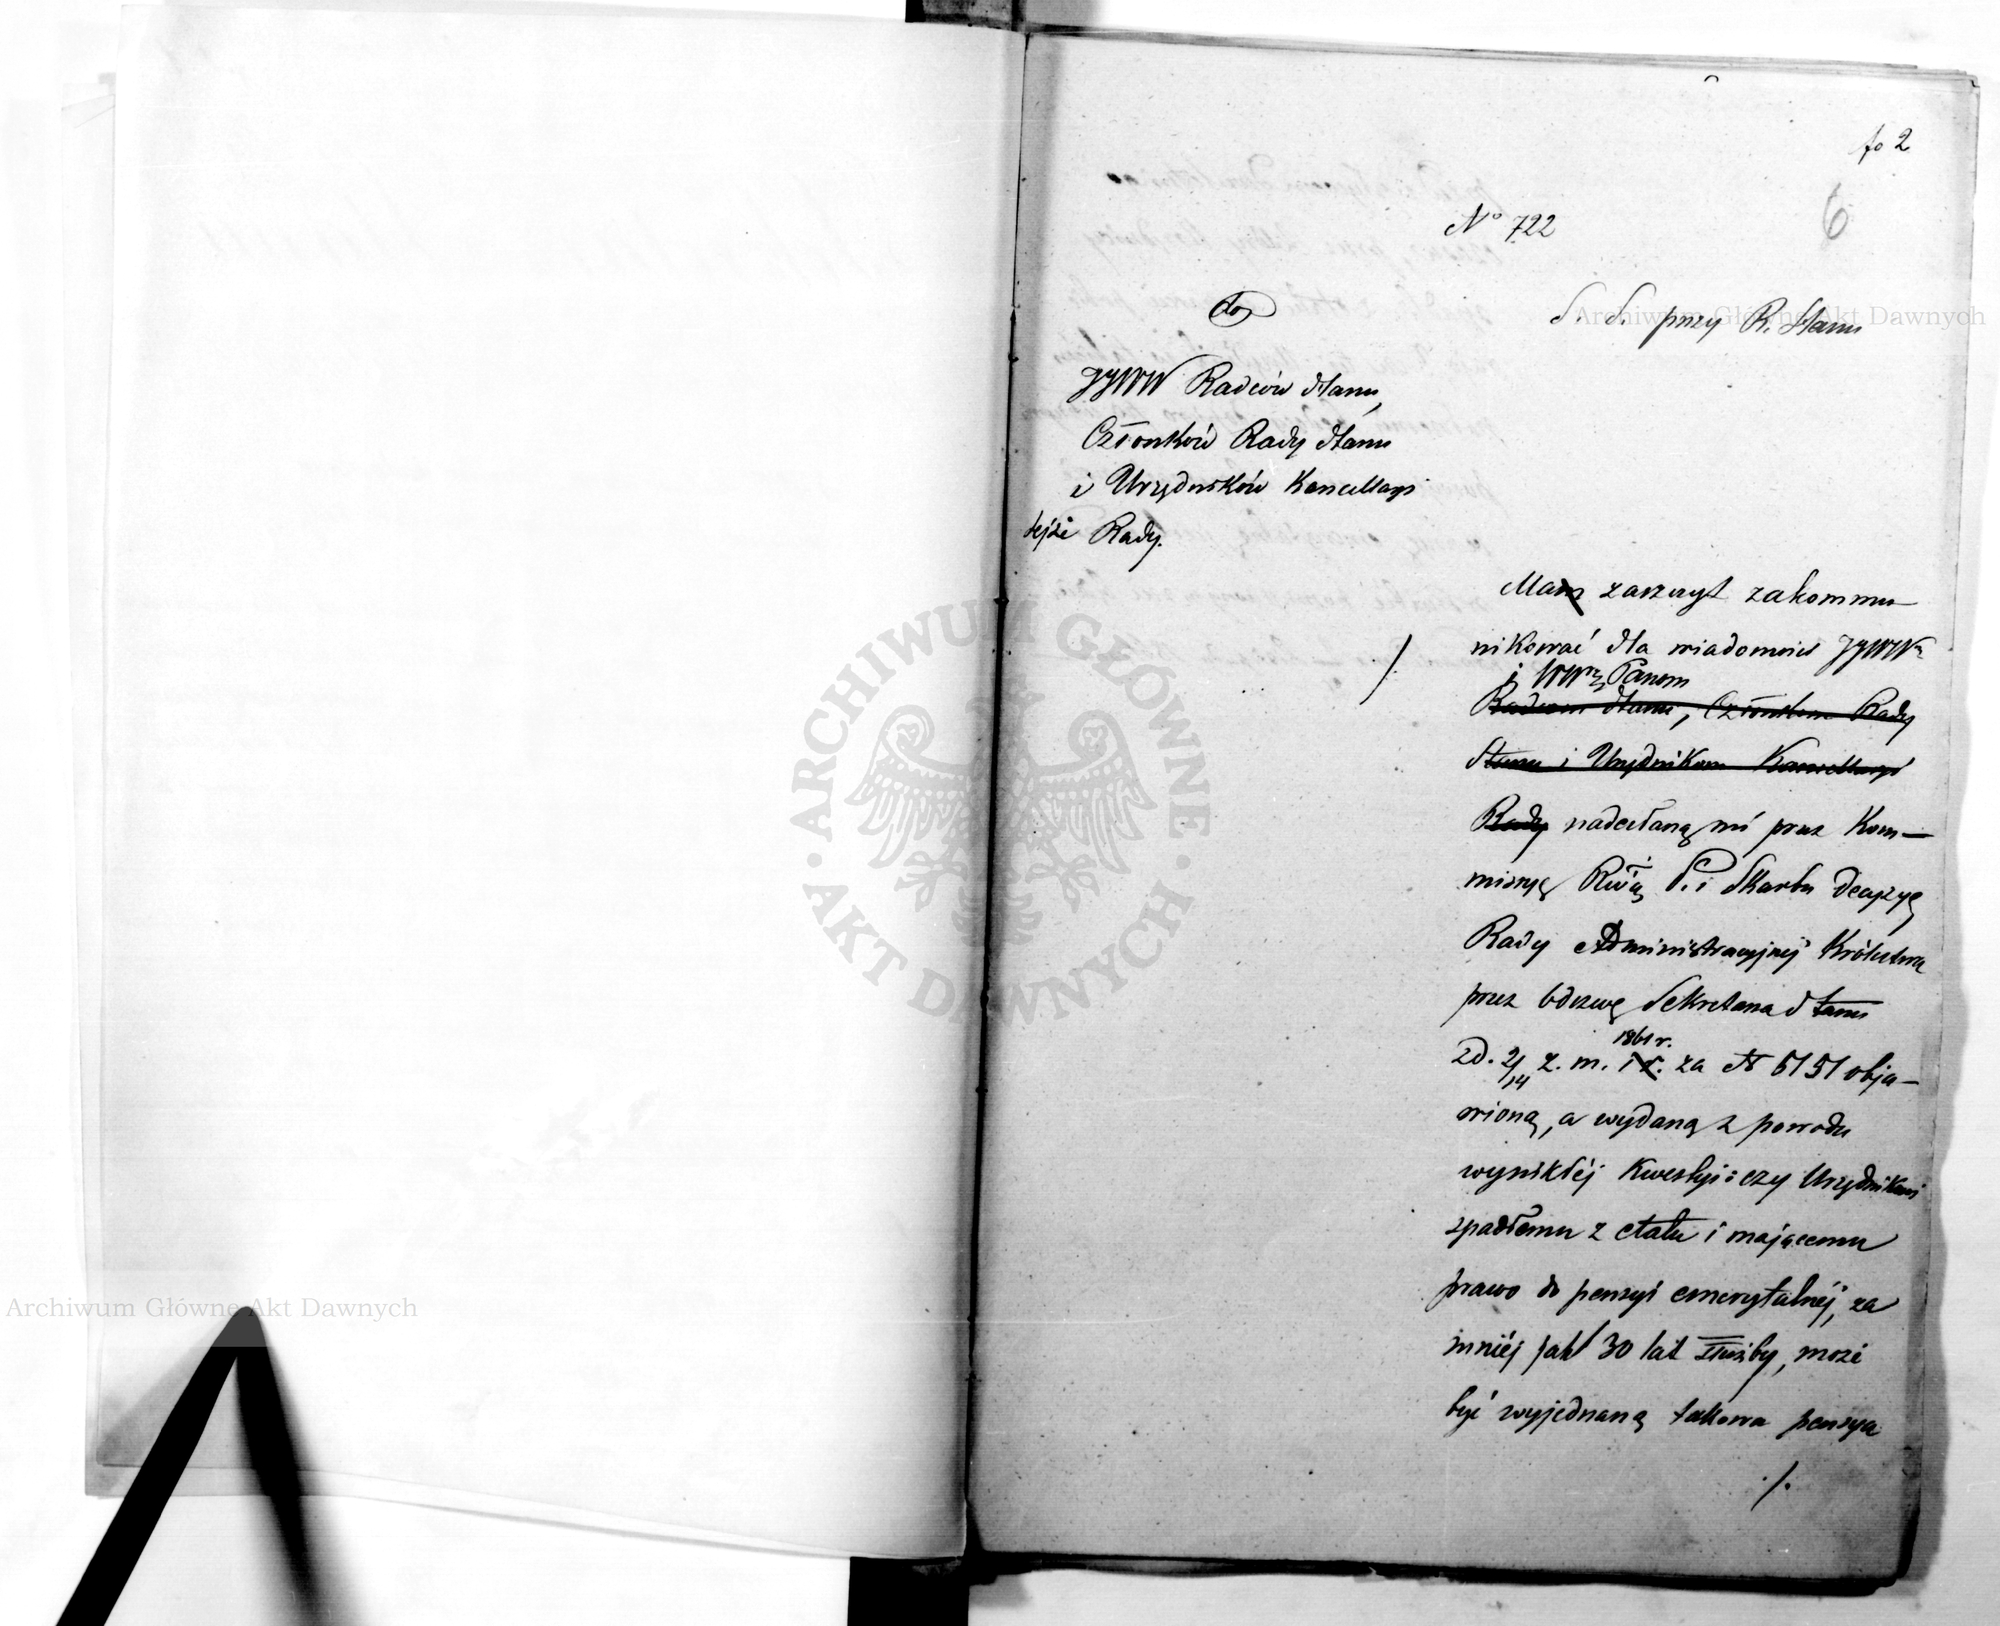 fo 2
6
№ 722
do
S. S. przy R. Stanu
JJWW Radców Stanu,
Członków Rady Stanu
i Urzędników Kancellaryi
tejże Rady.
Mam zaszczyt zakommu-
nikować dla wiadomości JJWW
i WW Panom
Radcom Stanu, Członkom Rady
Stanu i Urzędnikom Kancellaryi
Rady nadesłaną mi przez Kom-
missyę Rząą P. i Skarbu Decyzyę
Rady Administracyjnej Królestwa
przez Odezwę Sekretarza Stanu
1861 r.
z d. 2/14 z. m. i r. za № 5151 obja-
wioną, a wydaną z powodu
wynikłéj Kwestyi: czy Urzędnikowi
spadłemu z etatu i mającemu
prawo do pensyi emerytalnéj, za
mniéj jak 30 lat służby, może
być wyjednaną takowa pensya
./.
Archiwum Główne Akt Dawnych
ARCHIWUM GŁÓWNE · AKT DAWNYCH ·
Archiwum Główne Akt Dawnych